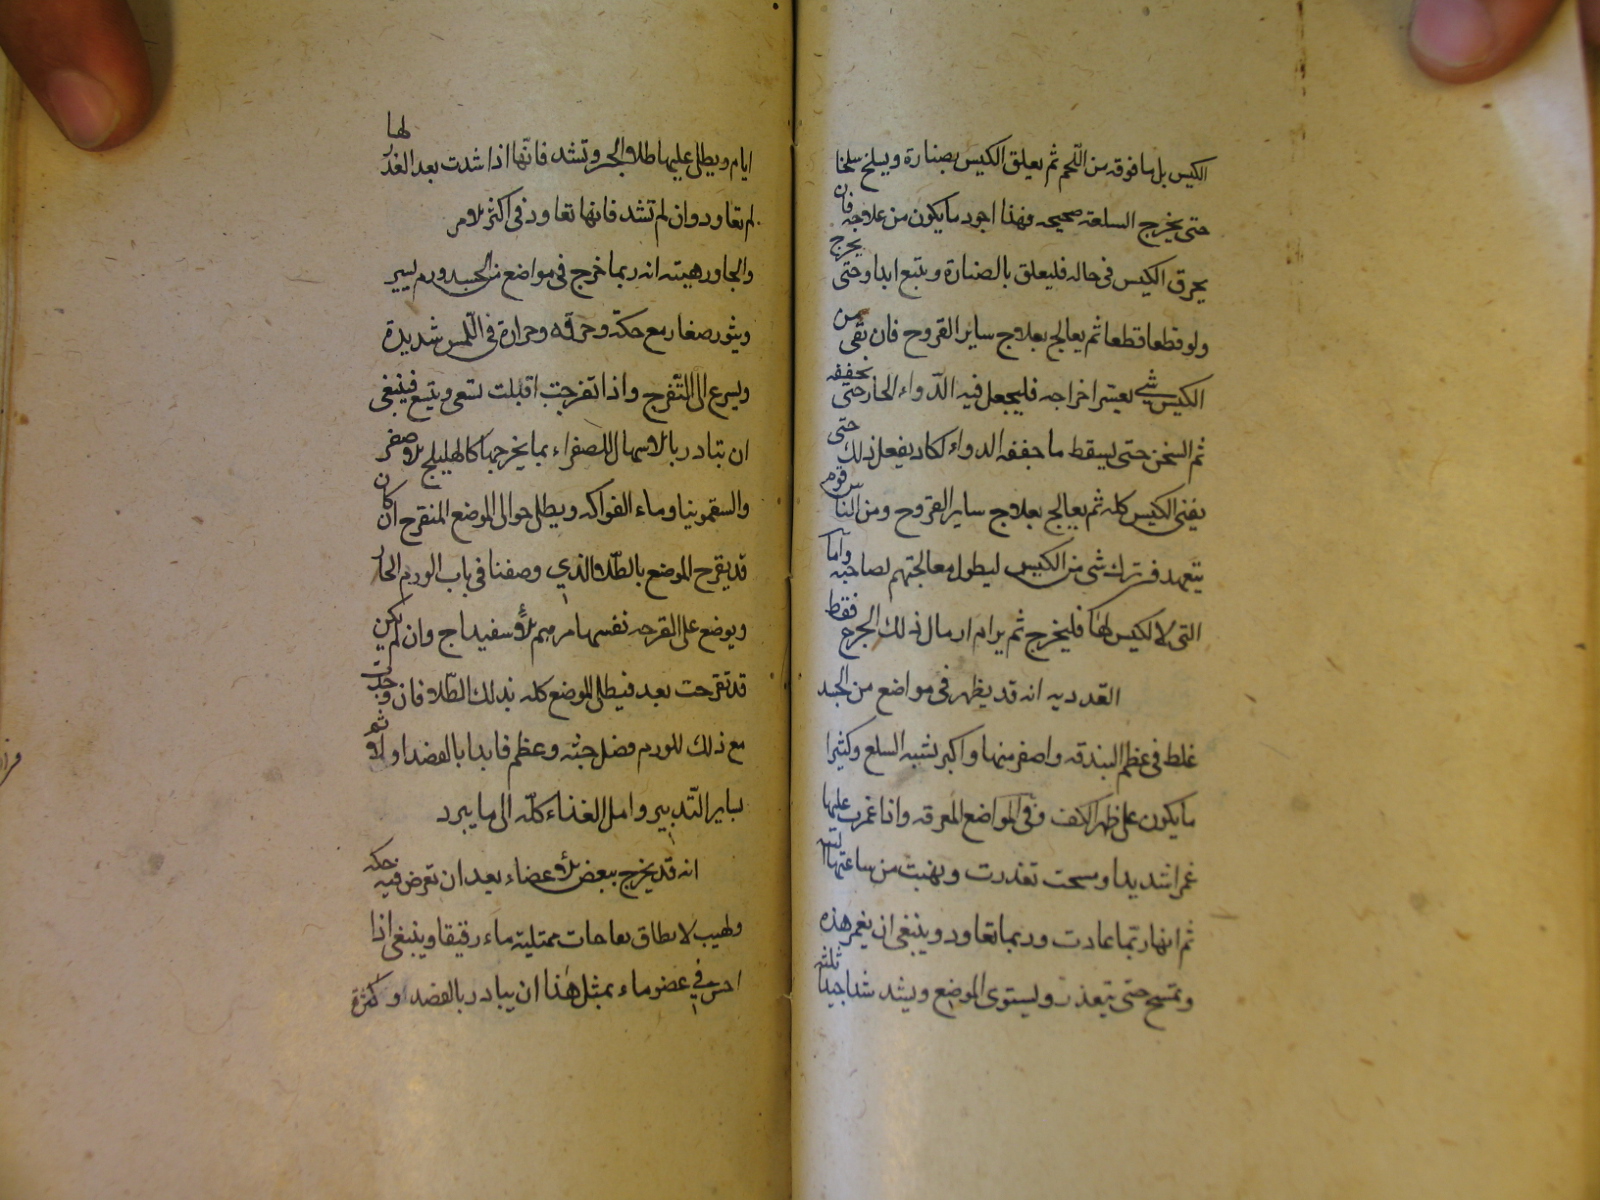 الكيس بل ما فوقه من اللحم ثم يعلق الكيس بصنارة ويسلخ سلخا
حتى يخرج السلعة صحيحه فهذا اجود ما يكون من علاجه فان
يحرق الكيس في حاله فليعلق بالصنارة ويتبع ابدا وحتى يخرج
ولو قطعا قطعا ثم يعالج بعلاج ساير القروح فان بقى من
الكيس شي يعسر اخراجه فليجعل فيه الدواء الحار حتى يجففه
ثم السخن حتى يسقط ما جففه الدواء لكاد يفعل ذلك حتى
يفنى الكيس كله ثم يعالج بعلاج ساير القروح ومن الناس قوم
يتعهد في ترك شى من الكيس ليطول معالجتهم لصاحبه واما
التى لا لكيس لها فليخرج ثم يرام ادمال ذلك الجرح فقط
الغدديه انه قد يظهر في مواضع من الجسد
غلط في عظم البندقه واصغر منها واكبر تشبه السلع وكثيرا
ما يكون على ظهر الكف وفي المواضع المعرقه واذا غمرت عليها
غمرا شديدا ومسحت تغدرت وذهبت من ساعتها البته
ثم انها ربما عادت وربما تعاود وينبغى ان يغمر هذه
وتمسح حتى تتغدر ويستوى الموضع ويشد شدا جيدا ثلثه
ايام ويطلى عليها طلاء الجر وتشد فانها اذا شدت بعد الغدر لها
لم تعاود وان لم تشد فانها تعاود في اكثر الامر
والجاورهيته انه ربما خرج في مواضع من الجسد ورم يسير
وبثور صغار مع حكة وحرقه وحرارة في اللمس شديدة
ويسرع الى التقرح واذا تقرحت اقبلت تسعى وتتسع فينبغى
ان تبادر بالاسهال للصفراء بما يخرجها كالهليلج الاصفر
والسقمونيا وماء الفواكه ويطلى حوالى الموضع المتقرح ان كان
قد يقرح الموضع بالطلاء الذي وصفنا في باب الورم الحار
ويوضع على القرحه نفسها مرهم الاسفيداج وان لم يكن
قد تقرحت بعد فيطلى الموضع كله بذلك الطلاء فان وجدت
مع ذلك للورم فضل جثه وعظم فابدا بالفصد اولا ثم
بساير التدبير وامل الغذاء كله الى ما يبرد
انه قد يخرج ببعض الاعضاء بعد ان تعرض فيه حكه
ولهيب لا يطاق نفاخات ممتلية ماء رقيقا وينبغى اذا
احس في عضو ماء بمثل هذا ان يبادر بالفصد وكثرة